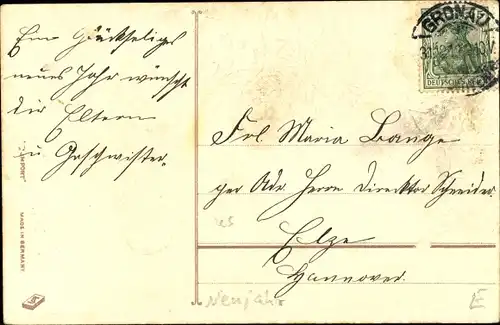 Ein Glückseliges
neues Jahr wünscht
dir Eltern
u Geschwister.
GRONAU
31.12.
DEUTSCHES REICH
Frl. Maria Lange
per Adr. Herrn Direktor Schreiber
Elze
Hannover.
Neujahr
E
MADE IN GERMANY